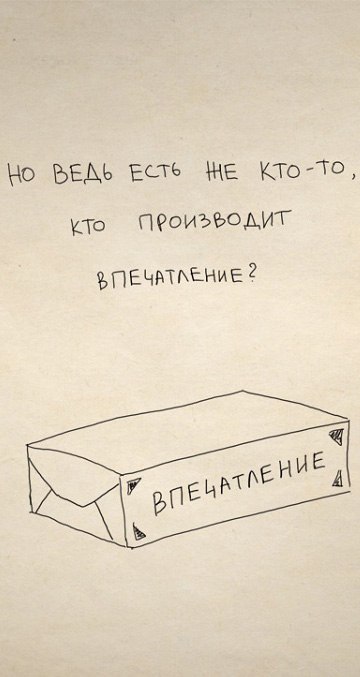 НО ВЕДЬ ЕСТЬ ЖЕ КТО-ТО,
КТО ПРОИЗВОДИТ
ВПЕЧАТЛЕНИЕ?
ВПЕЧАТЛЕНИЕ